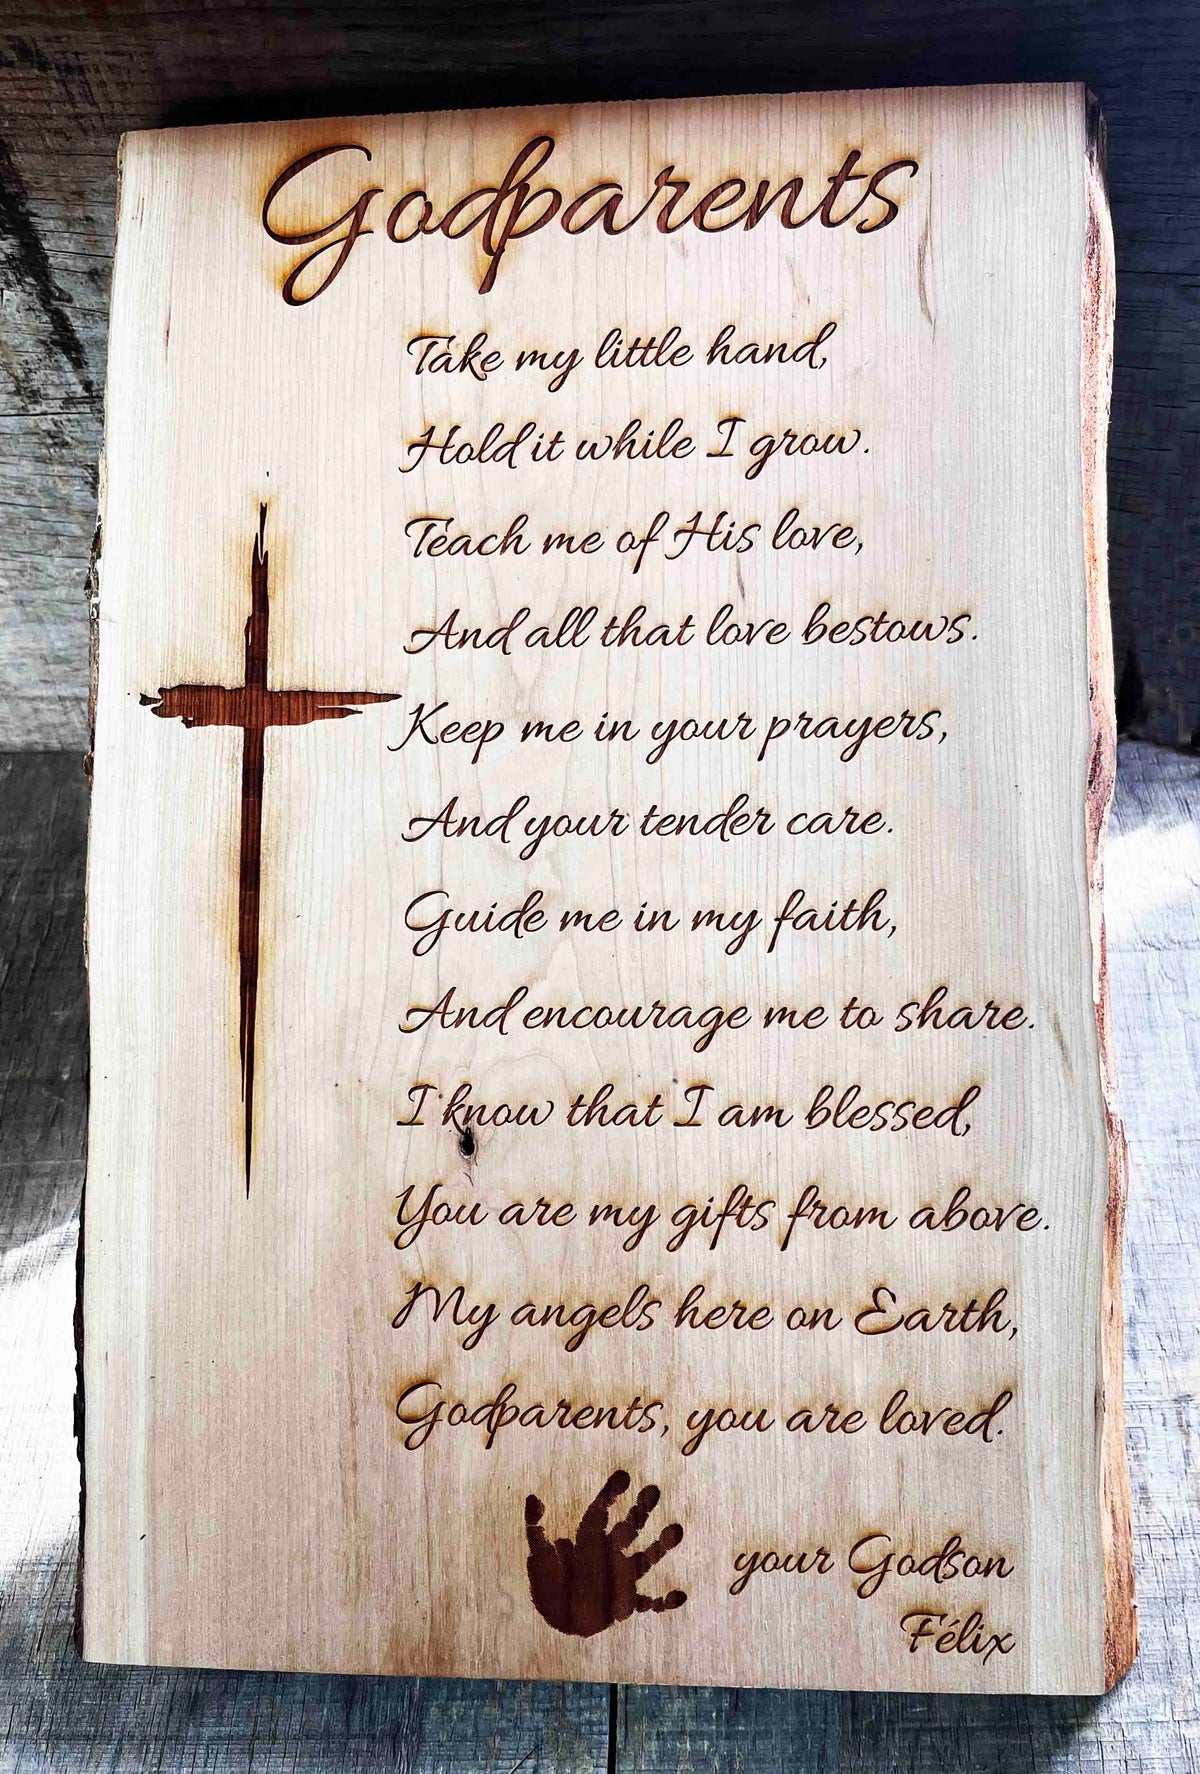 Godparents
Take my little hand,
Hold it while I grow.
Teach me of His love,
And all that love bestows.
Keep me in your prayers,
And your tender care.
Guide me in my faith,
And encourage me to share.
I know that I am blessed,
You are my gifts from above.
My angels here on Earth,
Godparents, you are loved.
your Godson
Félix